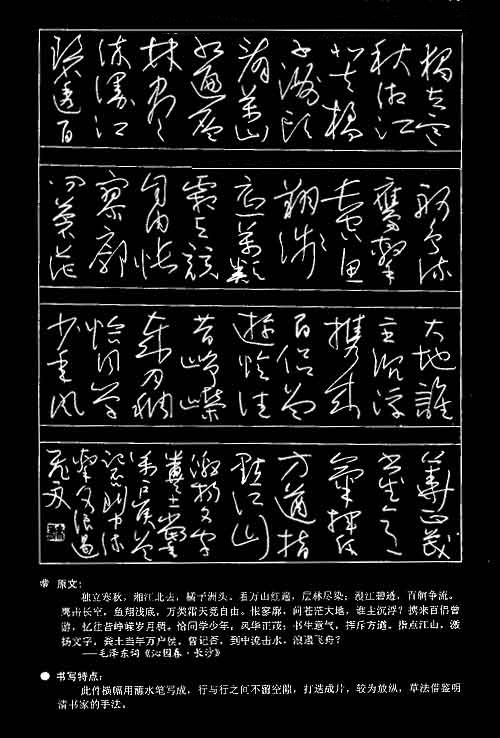 獨立寒
秋湘江
北去橘
子洲頭
看萬山
紅遍層
林尽
染漫江
碧透百
舸争流
鷹擊
長空魚
翔淺
底萬類
霜天競
自由悵
寥廓
問蒼茫
大地誰
主沉浮
携來
百侣曾
游憶往
昔崢嶸
歲月稠
恰同學
少年風
華正茂
書生意
氣揮斥
方遒指
點江山
激揚文字
糞土當年
萬户侯曾
記否到中流
擊水浪遏
飛舟
原文：
独立寒秋，湘江北去，橘子洲头。看万山红遍，层林尽染；漫江碧透，百舸争流。
鹰击长空，鱼翔浅底，万类霜天竞自由。怅寥廓，问苍茫大地，谁主沉浮？携来百侣曾
游，忆往昔峥嵘岁月稠。恰同学少年，风华正茂；书生意气，挥斥方遒。指点江山，激
扬文字，粪土当年万户侯。曾记否，到中流击水，浪遏飞舟？
——毛泽东词《沁园春·长沙》
● 书写特点：
此件横幅用蘸水笔写成，行与行之间不留空隙，打造成片，较为放纵，草法借鉴明
清书家的手法。